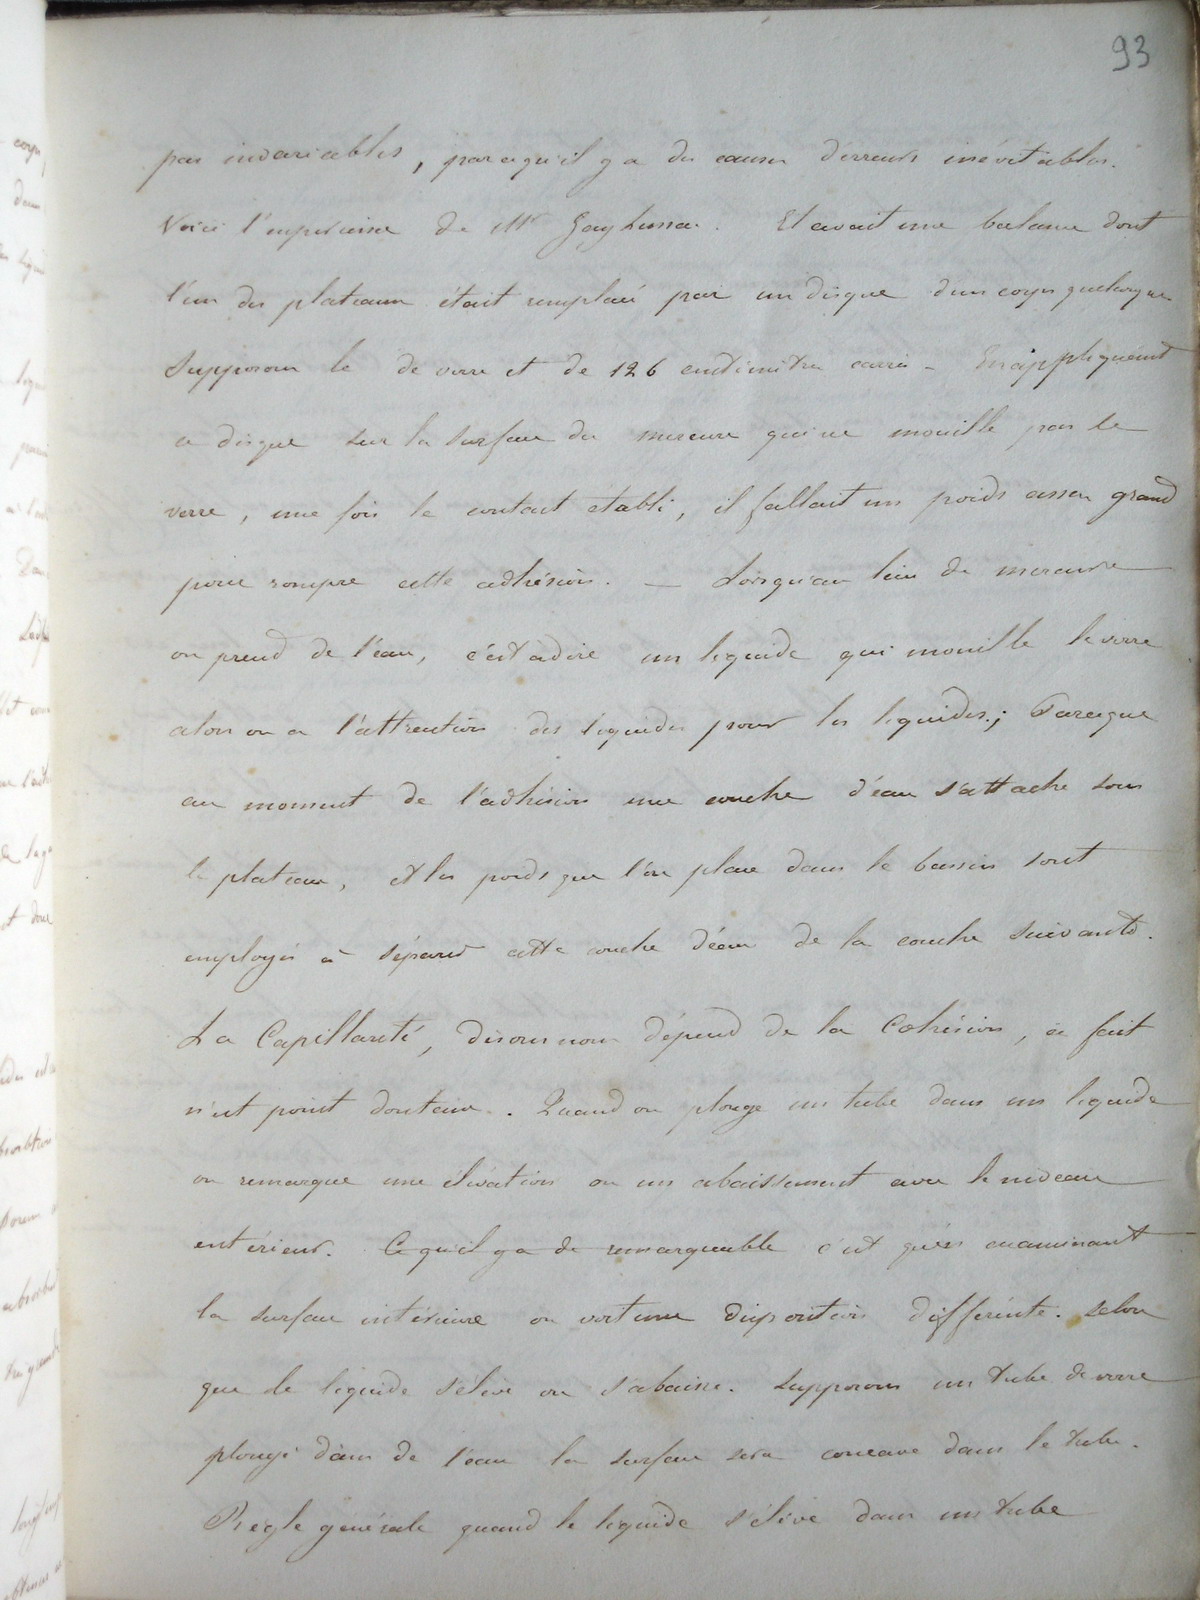 93
pas invariables, parcequ'il y a des causes d'erreurs inévitables.
Voici l'expérience de Mr Gay Lussac. Il avait une balance dont
l'un des plateaux était remplacé par un disque d'un corps quelconque
Supposons le de verre et de 126 centimètres carrés - En appliquant
ce disque sur la surface du mercure qui ne mouille pas le
verre, une fois le contact etabli, il fallait un poids assez grand
pour rompre cette adhésion. — Lorsqu'au lieu de mercure
on prend de l'eau, c'est à dire un liquide qui mouille le verre
alors on a l'attraction des liquides pour les liquides; Parceque
au moment de l'adhésion une couche d'eau s'attache sous
le plateau, et les poids que l'on place dans le bassin sont
employés à séparer cette couche d'eau de la couche suivante.
La Capillarité, disons nous dépend de la Cohésion, ce fait
n'est point douteux. Quand on plonge un tube dans un liquide
on remarque une élévation ou un abaissement avec le niveau
extérieur. Ce qu'il y a de remarquable c'est qu'en examinant
la surface intérieure on voit une disposition différente. selon
que le liquide s'élève ou s'abaisse. Supposons un tube de verre
plongé dans de l'eau la surface sera concave dans le tube.
Règle générale quand le liquide s'élève dans un tube